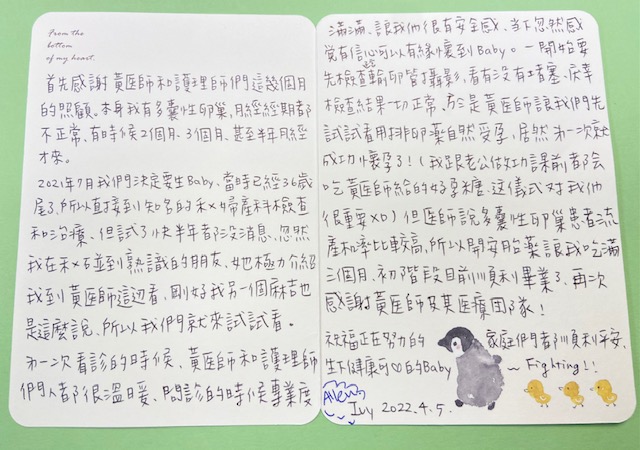 From the
bottom
of my heart.
首先感謝黃醫師和護理師們這幾個月
的照顧。本身我有多囊性卵巢,月經經期都
不正常,有時候2個月、3個月、甚至半年月經
才來。
2021年7月我們決定要生Baby,當時已經36歲
尾了,所以直接到知名的禾×婦產科檢查
和治療,但試了快半年都沒消息,忽然
我在禾×碰到熟識的朋友,她極力介紹
我到黃醫師這邊看,剛好我另一個麻吉也
是這麼說,所以我們就來試試看。
第一次看診的時候,黃醫師和護理師
們人都很溫暖、問診的時候專業度
滿滿、讓我們很有安全感、當下忽然感
覺有信心可以有緣懷到Baby。一開始要
先檢查輸卵管攝影,看有沒有堵塞,
檢查結果一切正常,於是黃醫師讓我們先
試試看用排卵藥自然受孕,居然第一次就
成功懷孕了!(我跟老公做功課前都會
吃黃醫師給的好孕糖,这儀式对我們
很重要XD)但医師說多囊性卵巢患者流
產和率比較高,所以開安胎藥讓我吃滿
三個月、初階段目前順利畢業了,再次
感謝黃醫師及其医療团隊!
祝福正在努力的家庭們都順利平安,
生下健康可♡的Baby ~ Fighting!!
Ivy 2022.4.5.